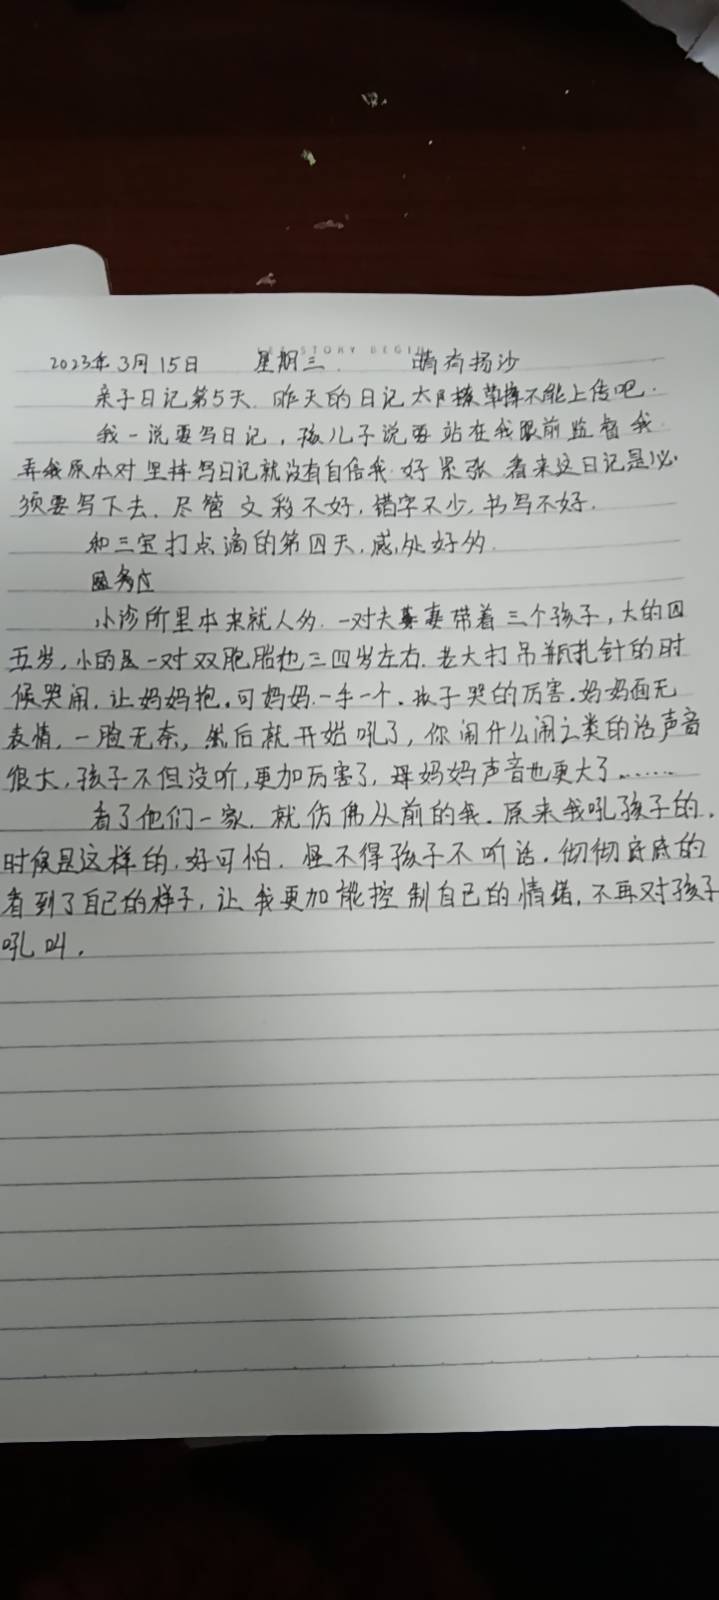 LET STORY BEGIN
2023年3月15日 星期三. 晴有扬沙
亲子日记第5天. 昨天的日记太潦草摔不能上传吧.
我一说要写日记, 孩儿子说要站在我跟前监督我.
弄我原本对坚持写日记就没有自信我. 好紧张 看来这日记是必
须要写下去. 尽管文彩不好, 错字不少, 书写不好.
和三宝打点滴的第四天. 感处好的.
小诊所里本来就人多. 一对夫妻带着三个孩子, 大的四
五岁, 小的是一对双胞胎也三四岁左右. 老大打吊瓶扎针的时
候哭闹. 让妈妈抱. 可妈妈一手一个. 孩子哭的厉害. 妈妈面无
表情, 一脸无奈, 然后就开始吼了, 你闹什么闹之类的话声音
很大, 孩子不但没听, 更加厉害了, 妈妈声音也更大了......
看了他们一家. 就仿佛从前的我. 原来我吼孩子的.
时候是这样的. 好可怕. 怪不得孩子不听话. 彻彻底底的
看到了自己的样子, 让我更加能控制自己的情绪, 不再对孩子
吼叫.